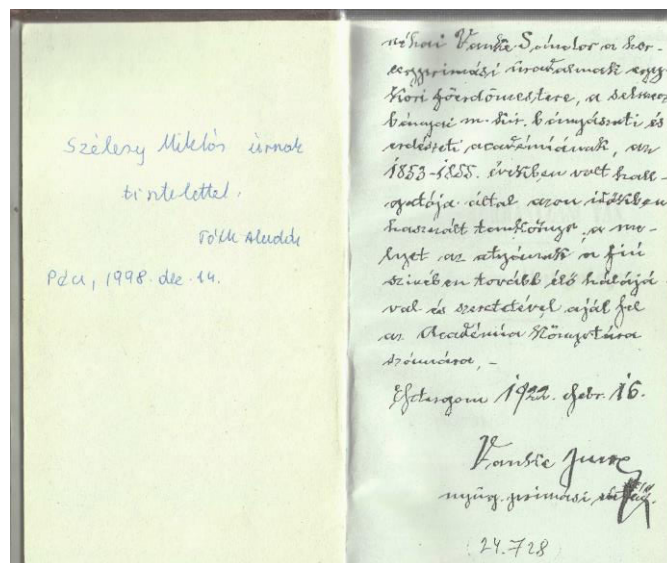 Szélesy Miklós úrnak
tisztelettel.
Tóth Aladár
Pécs, 1998. dec. 14.
néhai Vanke Sándor a her-
cegprimási uradalmak egy-
kori főerdőmestere, a selmecz-
bányai m. kir. bányászati és
erdészeti académiának, az
1853-1855. években volt hall-
gatója által azon időkben
használt tankönyve, a me-
lyet az atyának a fiú
szivében tovább élő hálájá
val és szeretetével ajál fel
az Académia Könyvtára
számára, -
Esztergom 1922. febr. 16.
Vanke
nyug. primási
(24.728)